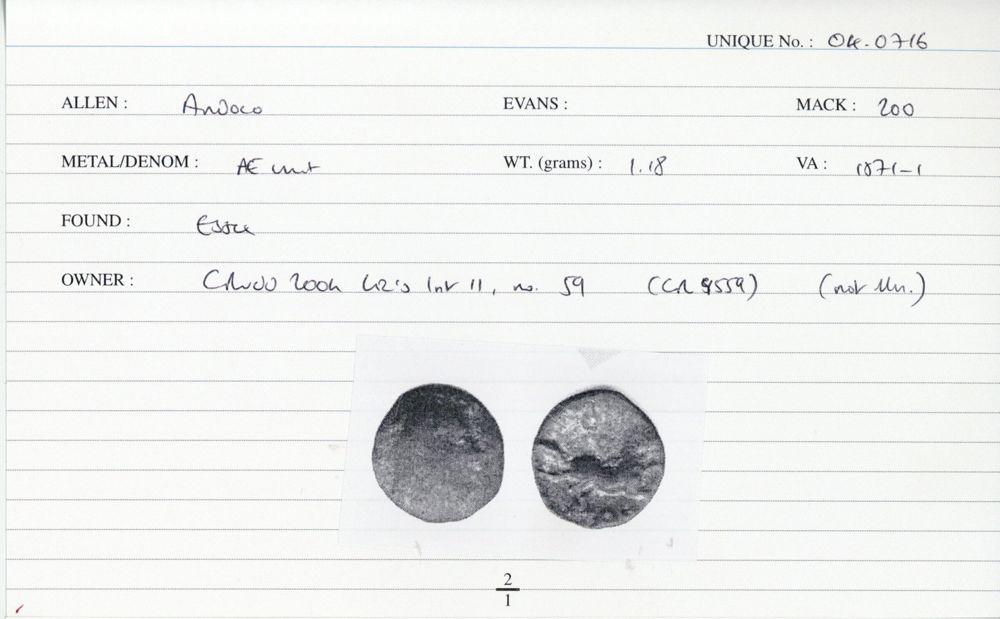 UNIQUE No. : 04-0716
ALLEN : Andoco EVANS : MACK : 200
METAL/DENOM : AE unit WT. (grams) : 1.18 VA : 1871-1
FOUND : Essex
OWNER : 2004 no. 59 (not ill.)
2
1